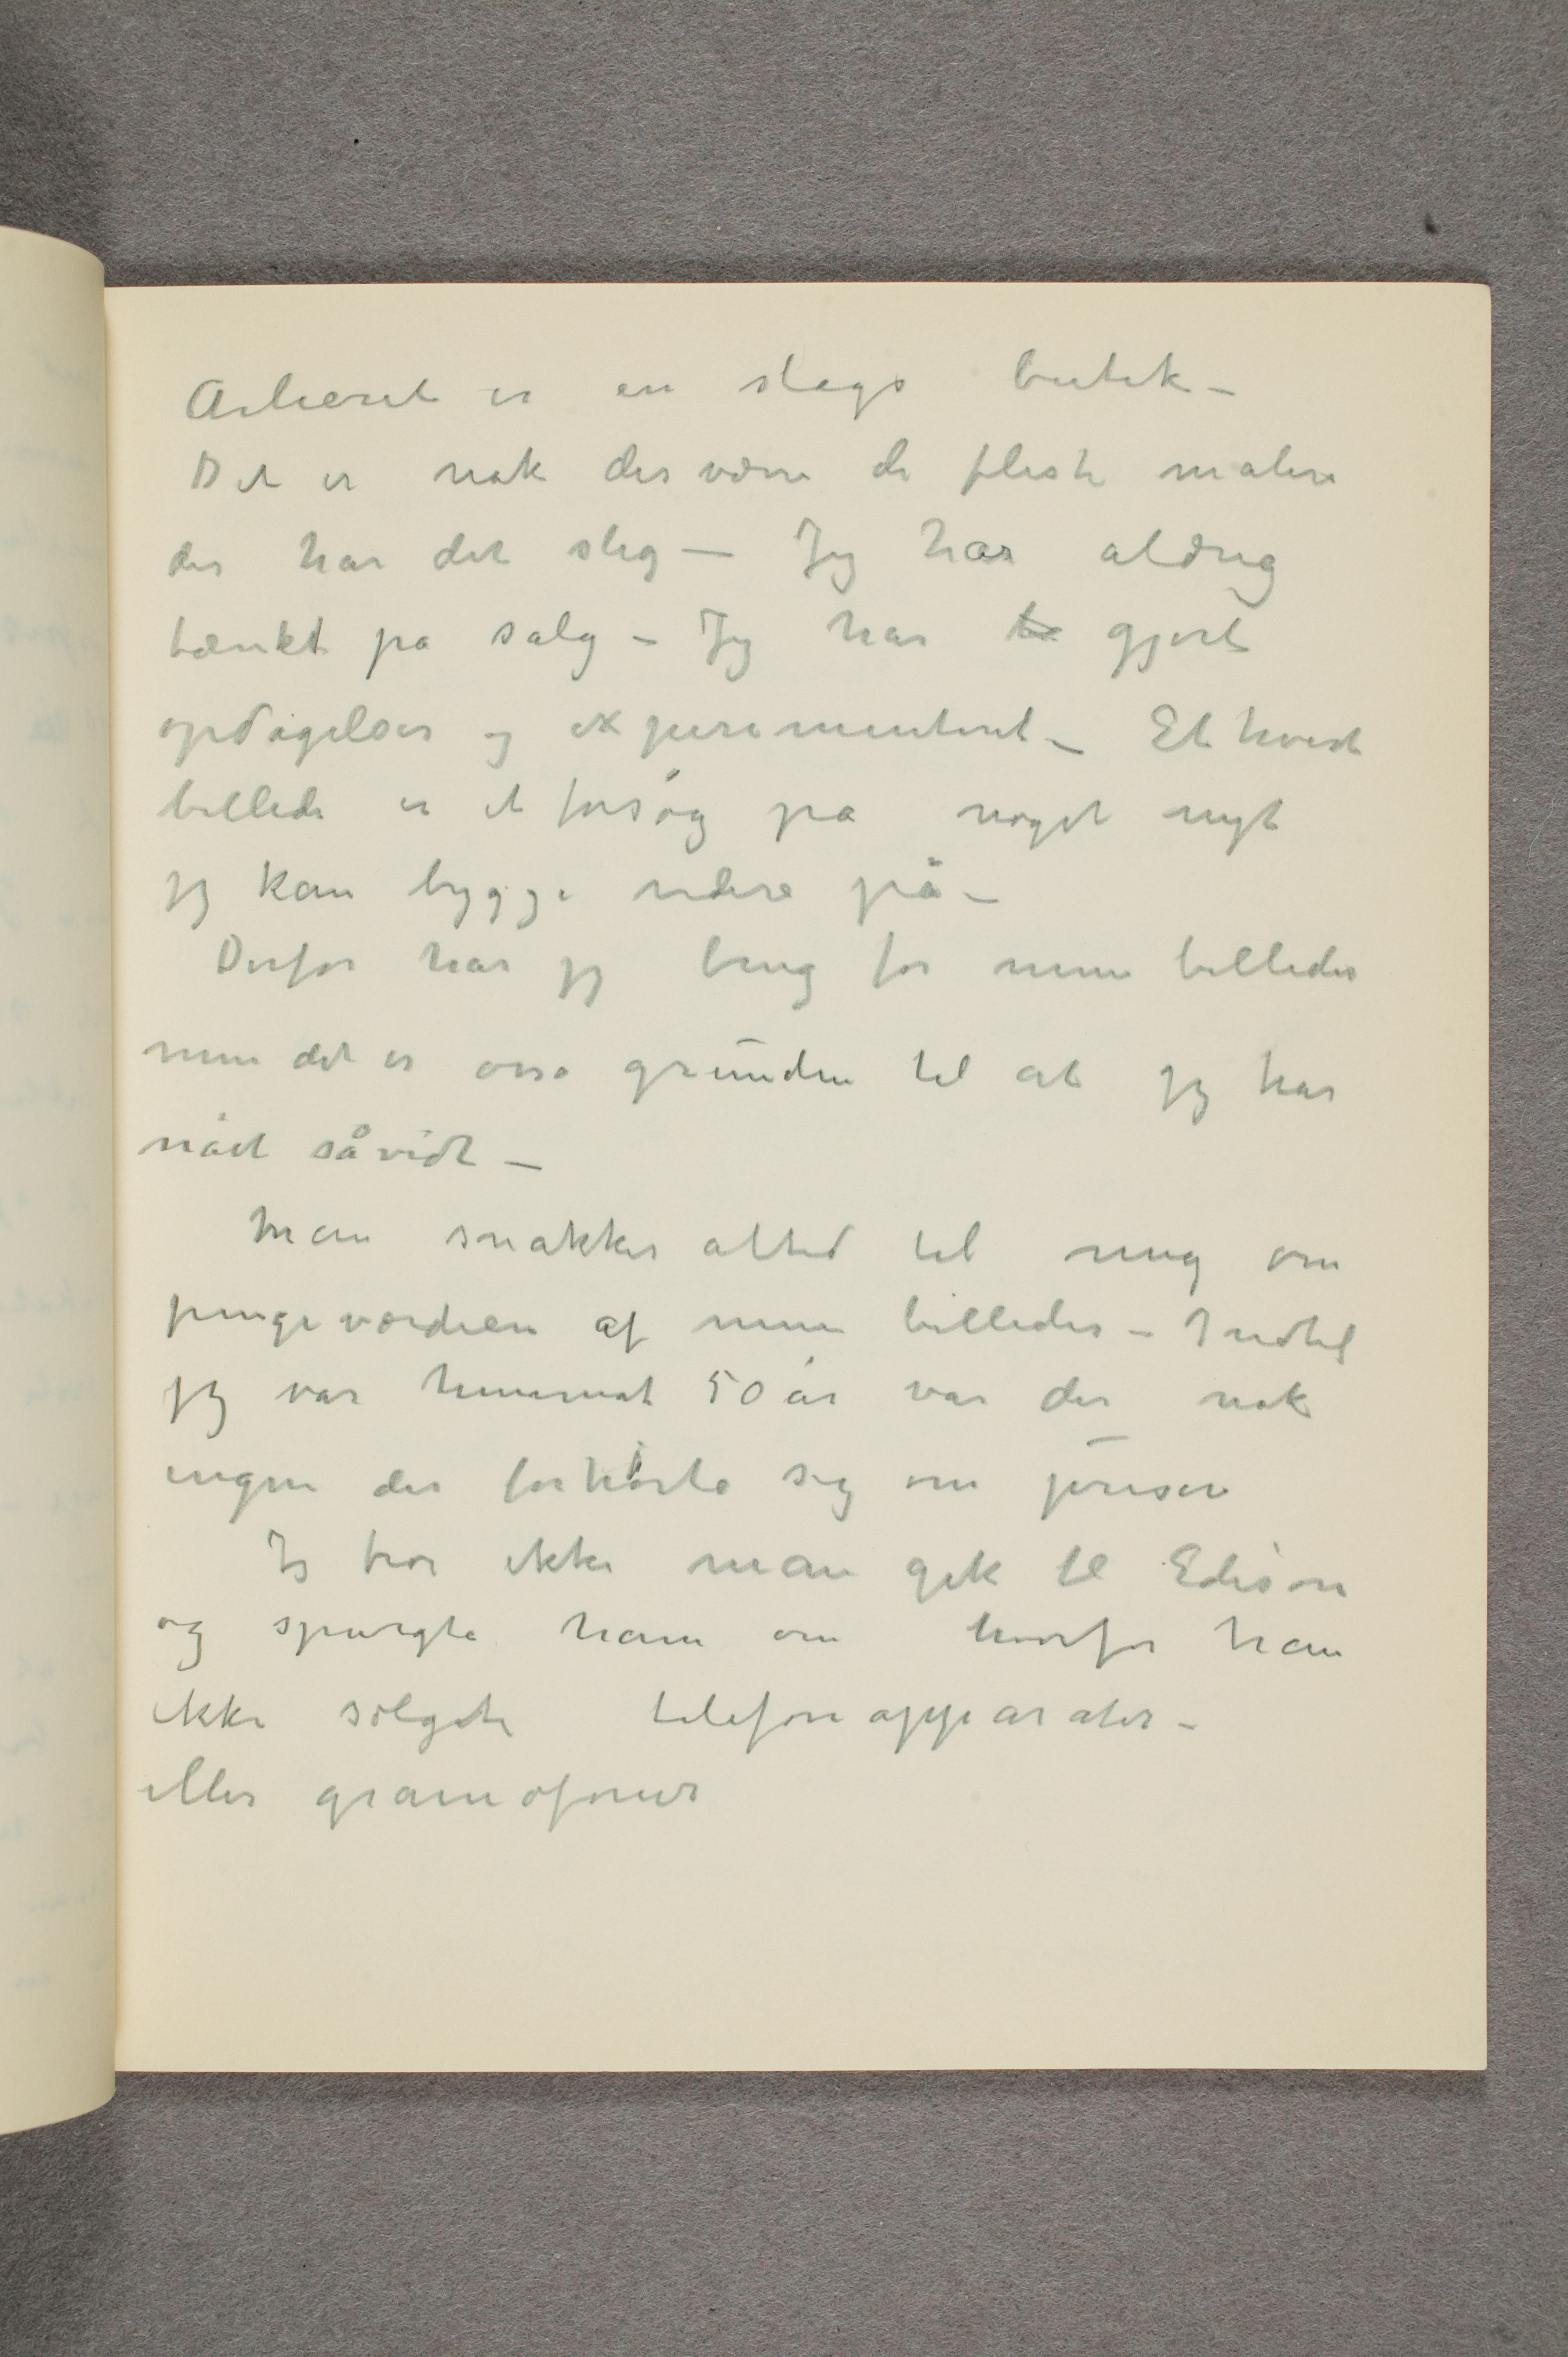 Atlieret er en slags butik –
Det er nok desværre de fleste malere
der har det slig – Jeg har aldrig
tænkt på salg – Jeg har tæ gjort
opdagelser og experimenteret – Ethvert
billede er et forsøg på noget nyt
jeg kan bygge videre på –
Derfor har jeg brug for mine billeder
men det er osså grunden til at jeg har
nået såvidt –
Man snakker altid til mig om
pengeværdien af mine billeder – Indtil
jeg var henimot 50 år var der nok
ingen der forhørte sig om prisen
Jeg tror ikke man gik til Edison
og spurgte ham om hvorfor han
ikke solgte telefonapparater –
eller gramofoner